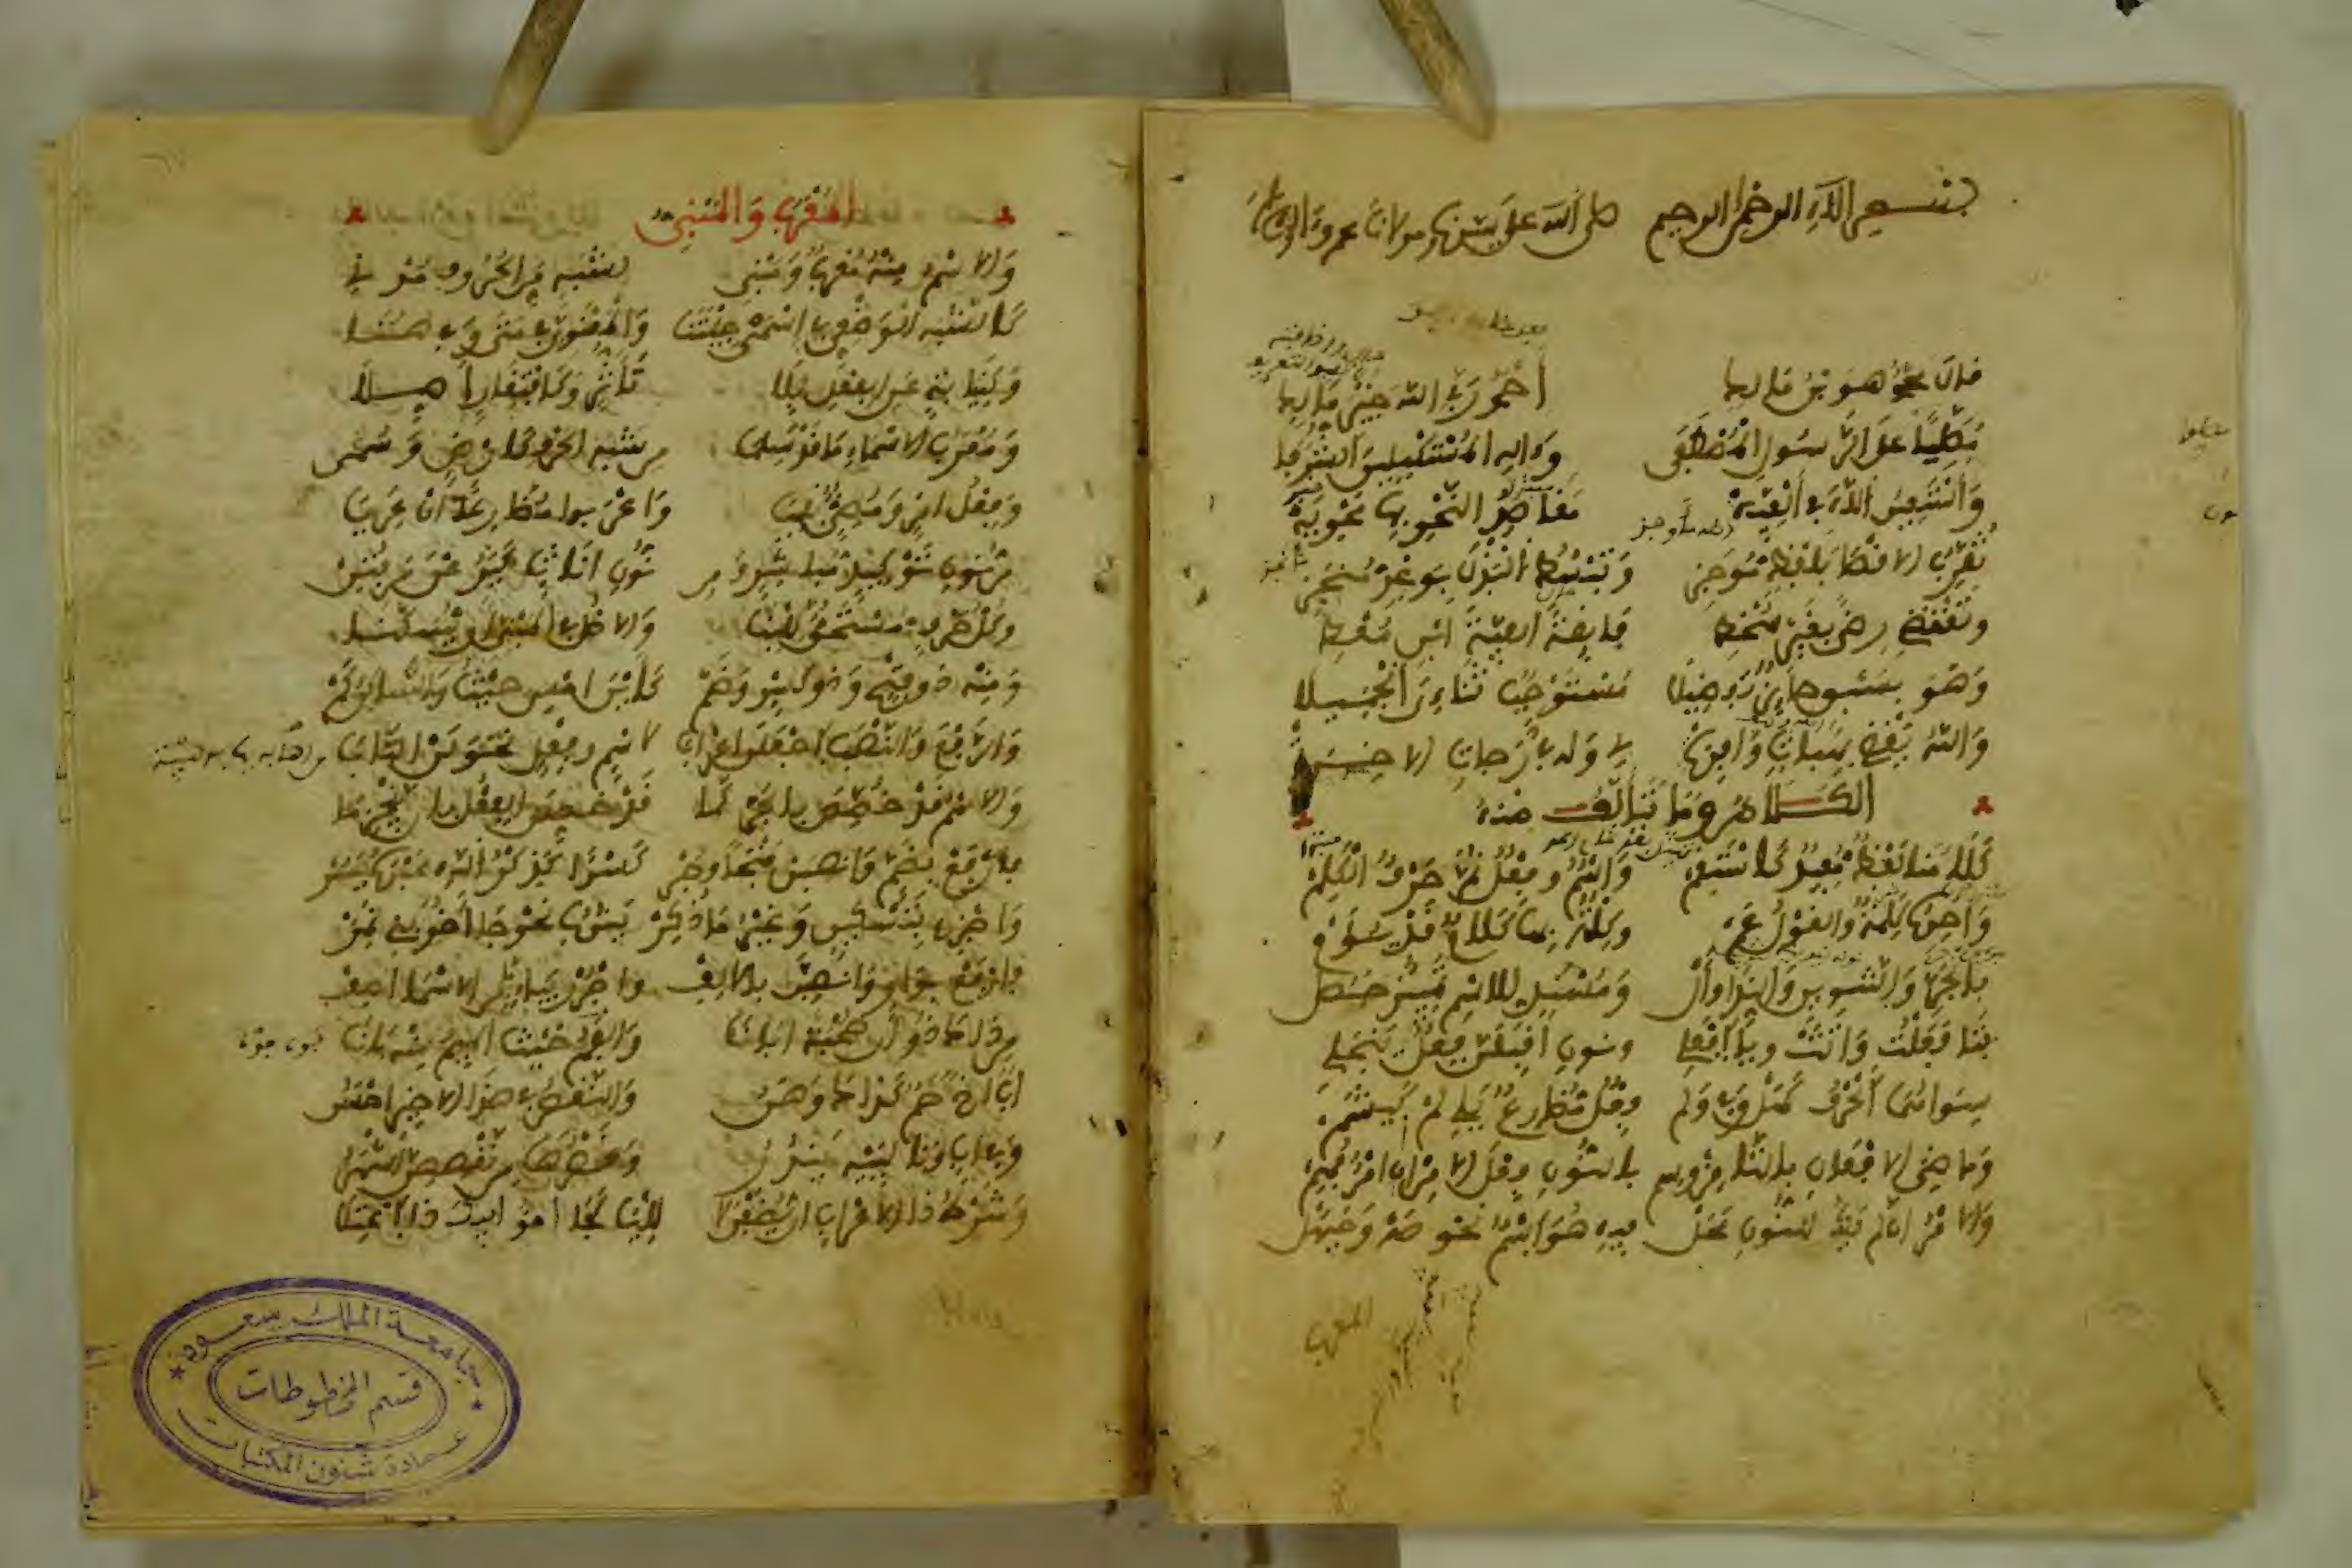 بسم الله الرحمن الرحيم صلى الله على سيدنا ومولانا محمد وآله
قال محمد هو بن مالك أحمد ربي الله خير مالك
مصليا على الرسول المصطفى وآله المستكملين الشرفا
وأستعين الله في ألفيه مقاصد النحو بها محويه
تقرب الاقصى بلفظ موجز وتبسط البذل بوعد منجز
وتقتضي رضى بغير سخط فايقة ألفية ابن معط
وهو بسبق حائز تفضيلا مستوجب ثناءي الجميلا
والله يقضي بهبات وافره لي وله في درجات الاخره
الكلام وما يتألف منه
كلامنا لفظ مفيد كاستقم واسم وفعل ثم حرف الكلم
واحده كلمة والقول عم وكلمة بها كلام قد يؤم
بالجر والتنوين والندا وأل ومسند للاسم تمييز حصل
بتا فعلت وأتت ويا افعلي ونون أقبلن فعل ينجلي
سواهما الحرف كهل وفي ولم فعل مضارع يلي لم كيشم
وماضي الافعال بالتا مز وسم بالنون فعل الامر إن أمر فهم
والامر إن لم يك للنون محل فيه هو اسم نحو صه وحيهل
المعرب
المعرب والمبني
والاسم منه معرب ومبني لشبه من الحروف مدني
كالشبه الوضعي في اسمي جئتنا والمعنوي في متى وفي هنا
وكنيابة عن الفعل بلا تأثر وكافتقار اصلا
ومعرب الاسماء ما قد سلما من شبه الحرف كأرض وسما
وفعل أمر ومضي بنيا وأعربوا مضارعا إن عريا
من نون توكيد مباشر ومن نون إناث كيرعن من فتن
وكل حرف مستحق للبنا والاصل في المبني أن يسكنا
ومنه ذو فتح وذو كسر وضم كأين أمس حيث والساكن كم
والرفع والنصب اجعلن إعرابا لاسم وفعل نحو لن أهابا
والاسم قد خصص بالجر كما قد خصص الفعل بأن ينجزما
فارفع بضم وانصبن فتحا وجر كسرا كذكر الله عبده يسر
واجزم بتسكين وغير ما ذكر ينوب نحو جا أخو بني نمر
وارفع بواو وانصبن بالالف واجرر بياء ما من الاسما أصف
من ذاك ذو إن صحبة أبانا والفم حيث الميم منه بانا
أب أخ حم كذاك وهن والنقص في هذا الاخير احسن
وفي أب وتالييه يندر وقصرها من نقصهن أشهر
وشرط ذا الاعراب أن يضفن لا لليا كجا أخو أبيك ذا اعتلا
جامعة الملك سعود
قسم المخطوطات
عمادة شئون المكتبات